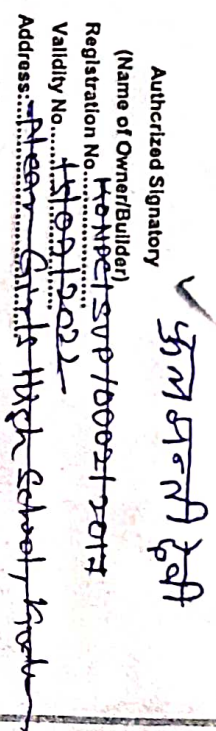 फुल मन्ती देवी
Authorized Signatory
(Name of Owner/Builder)
Registration No. HONPC/SVP/0002/2017
Validity No. 15/03/2022
Address: Near Girls High School,